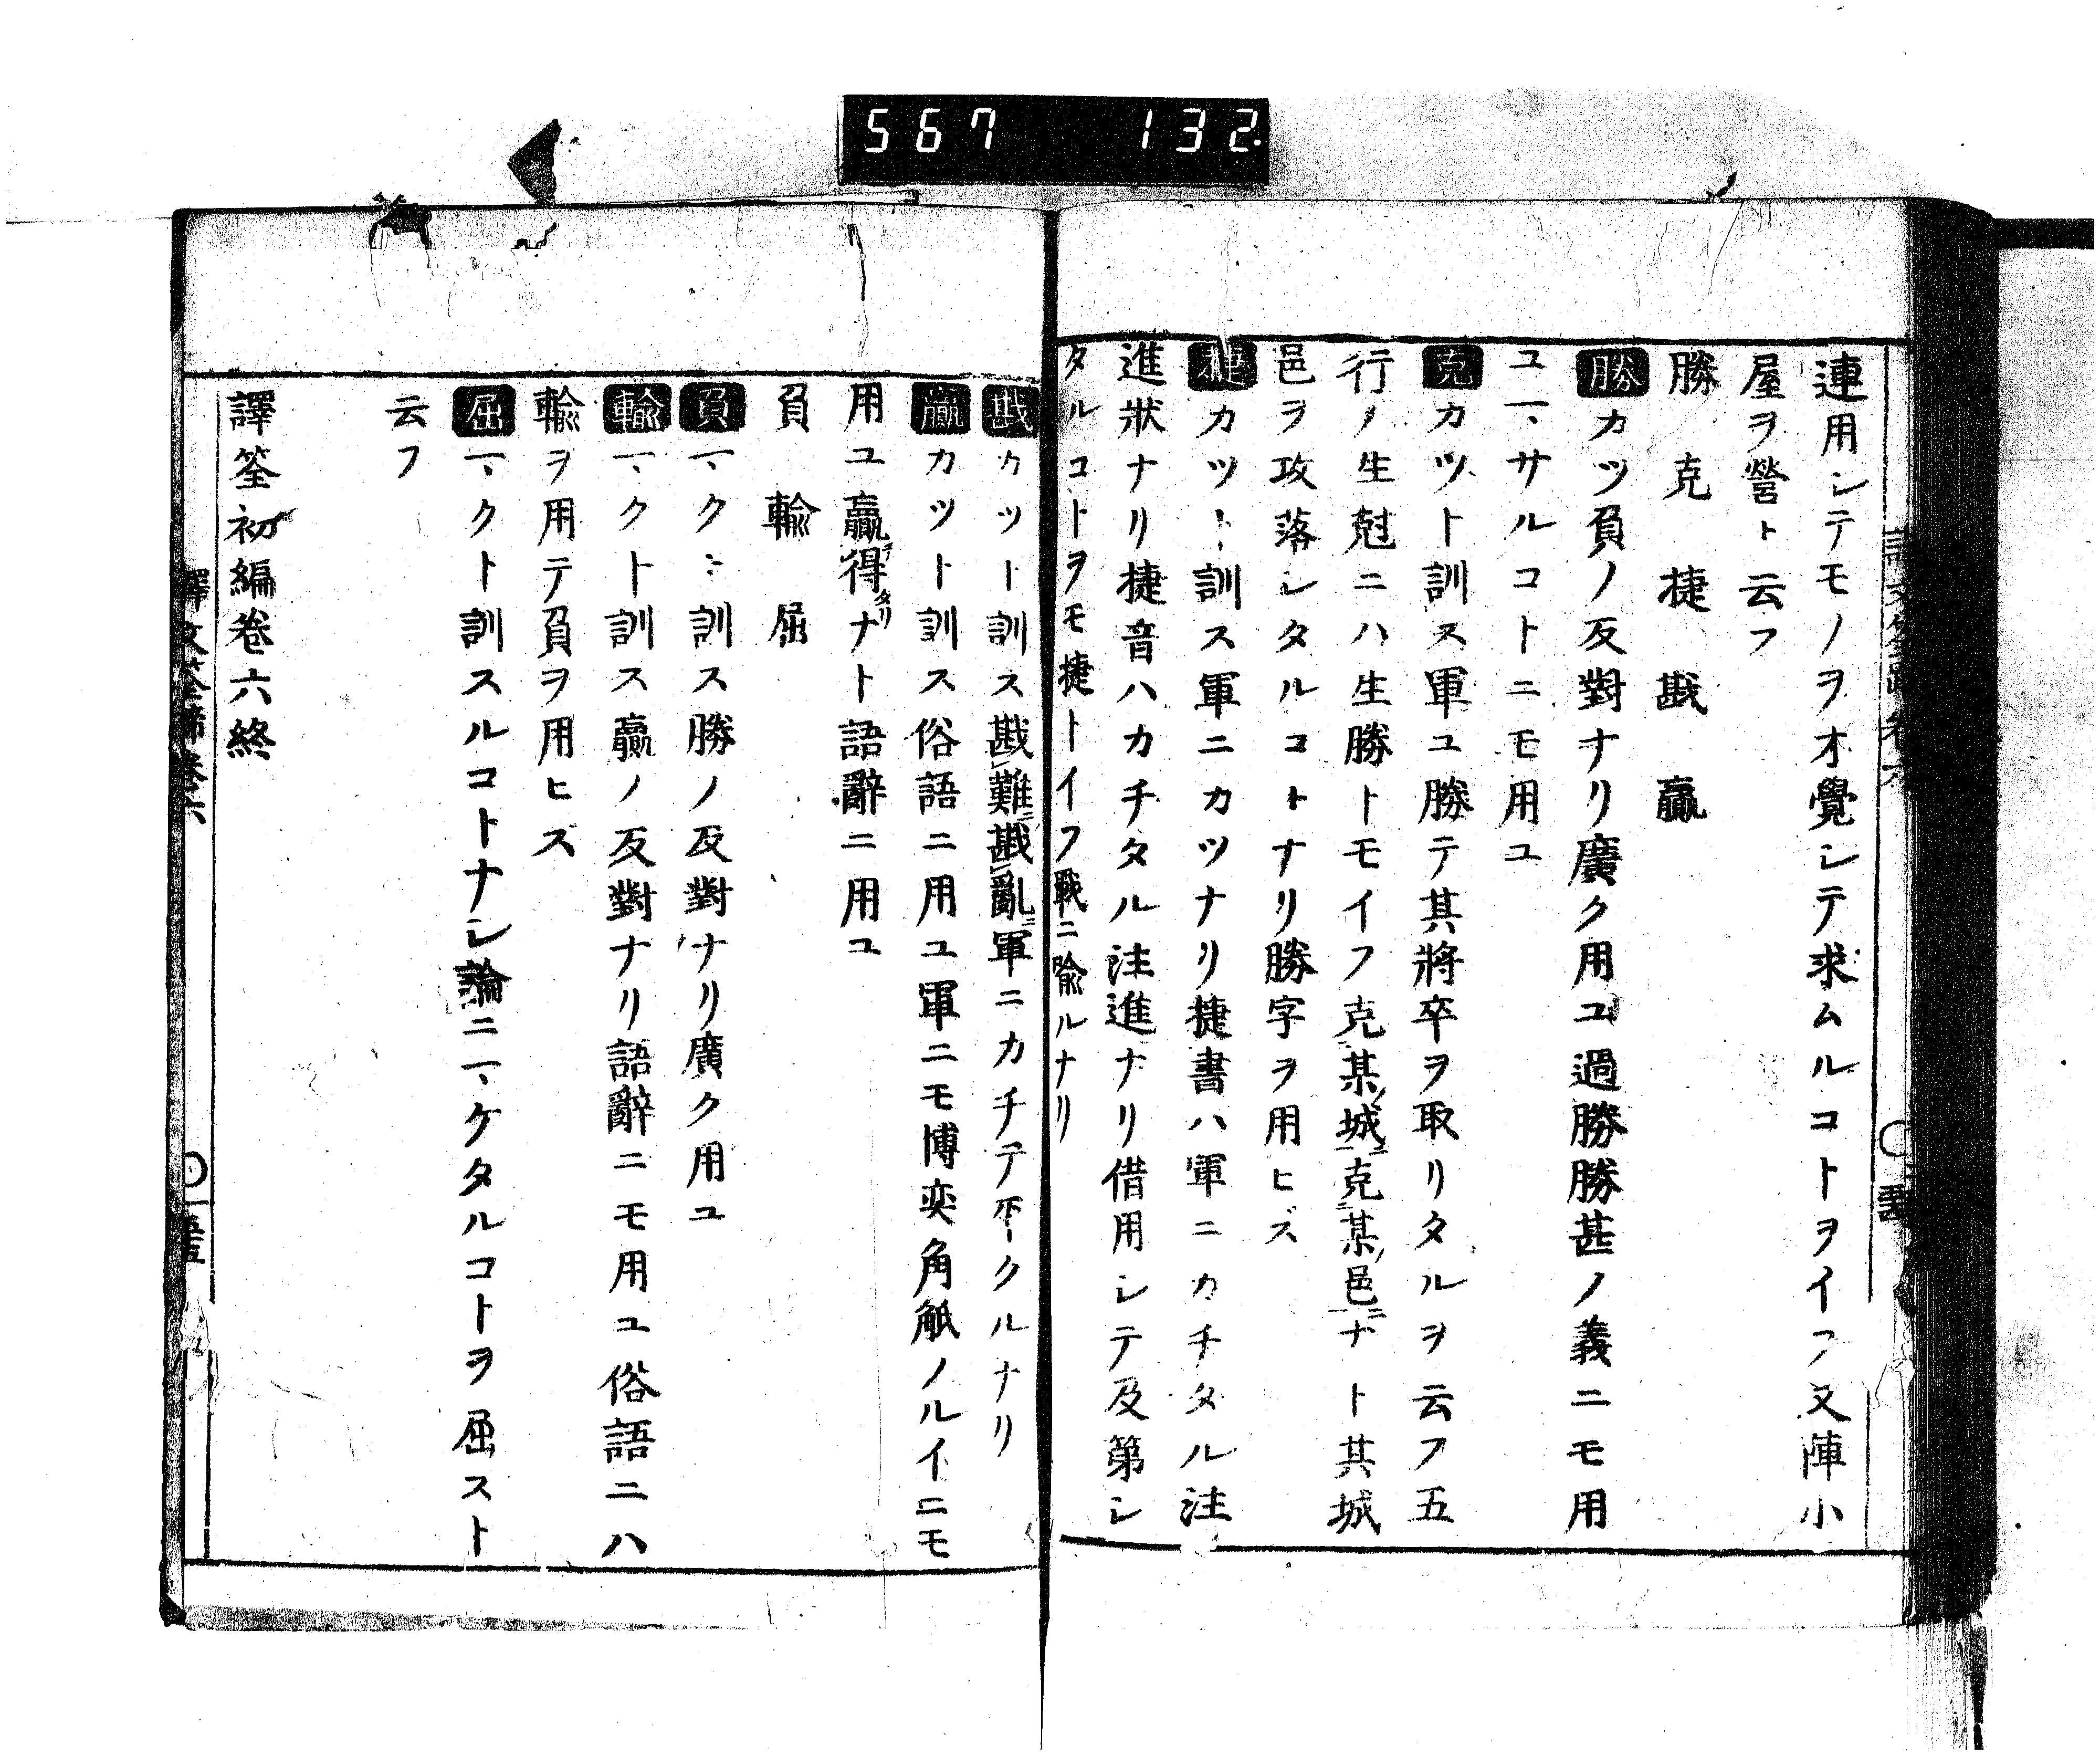 567 132.
連用シテモノヲオ覺シテ求ムルコトヲイフ又陣小
屋ヲ營ト云フ
勝 克 捷 戡 贏
勝カツ負ノ反對ナリ廣ク用ユ過勝勝甚ノ義ニモ用
ユマサルコトニモ用ユ
克カツト訓ス軍ユ勝テ其將卒ヲ取リタルヲ云フ五
行ノ生尅ニハ生勝トモイフ克某城克某邑ナト其城
邑ヲ攻落シタルコトナリ勝字ヲ用ヒズ
捷カツト訓ス軍ニカツナリ捷書ハ軍ニカチタル注
進狀ナリ捷音ハカチタル注進ナリ借用シテ及第シ
タルコトヲモ捷トイフ戰ニ喩ルナリ
戡カツト訓ス戡難戡亂軍ニカチテ平ークルナリ
贏カツト訓ス俗語ニ用ユ軍ニモ博奕角觝ノルイニモ
用ユ贏得タリナト語辭ニ用ユ
負 輸 屈
負マクト訓ス勝ノ反對ナリ廣ク用ユ
輸マクト訓ス贏ノ反對ナリ語辭ニモ用ユ俗語ニハ
輸ヲ用テ負ヲ用ヒズ
屈マクト訓スルコトナシ論ニマケタルコトヲ屈スト
云フ
譯筌初編卷六終
譯文筌蹄卷六